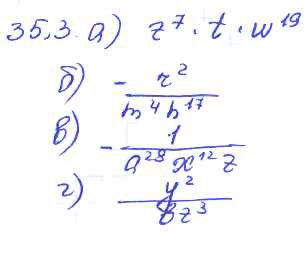 35,3. а) z⁷ · t · w¹⁹
б) - r² / m⁴ n¹⁷
в) - 1 / a²⁸ x¹² z
г) y² / 8z³